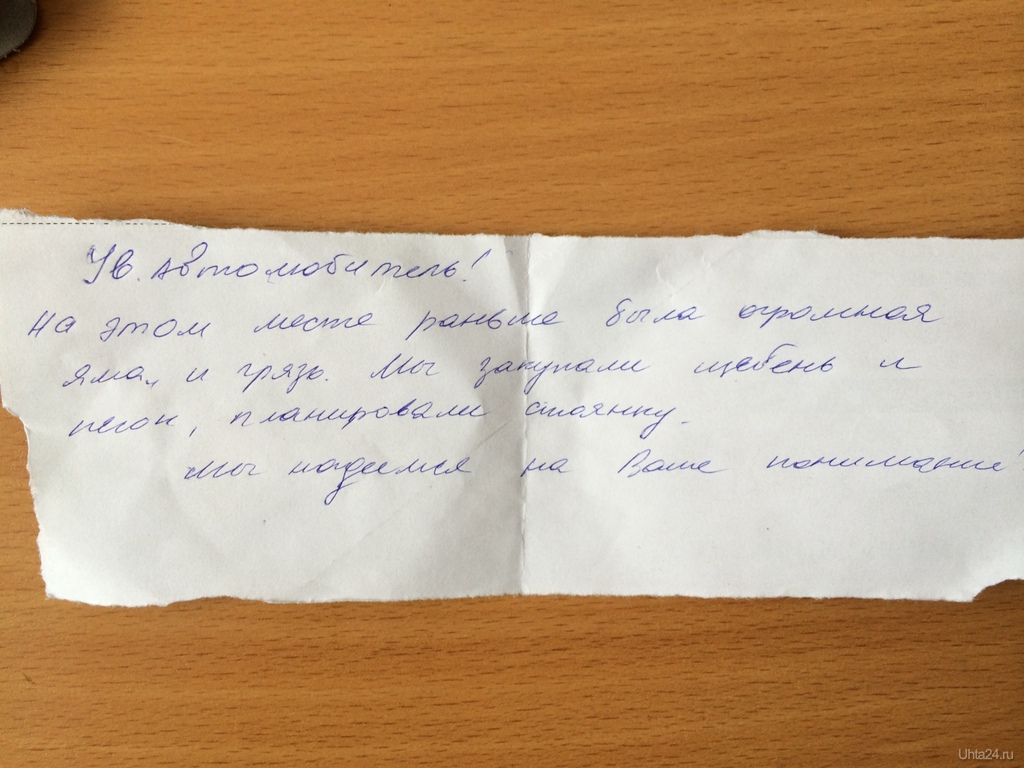 Ув. Автолюбитель!
На этом месте раньше была огромная
яма, и грязь. Мы закупали щебень и
песок, планировали стоянку.
Мы надеемся на Ваше понимание!
Uhta24.ru